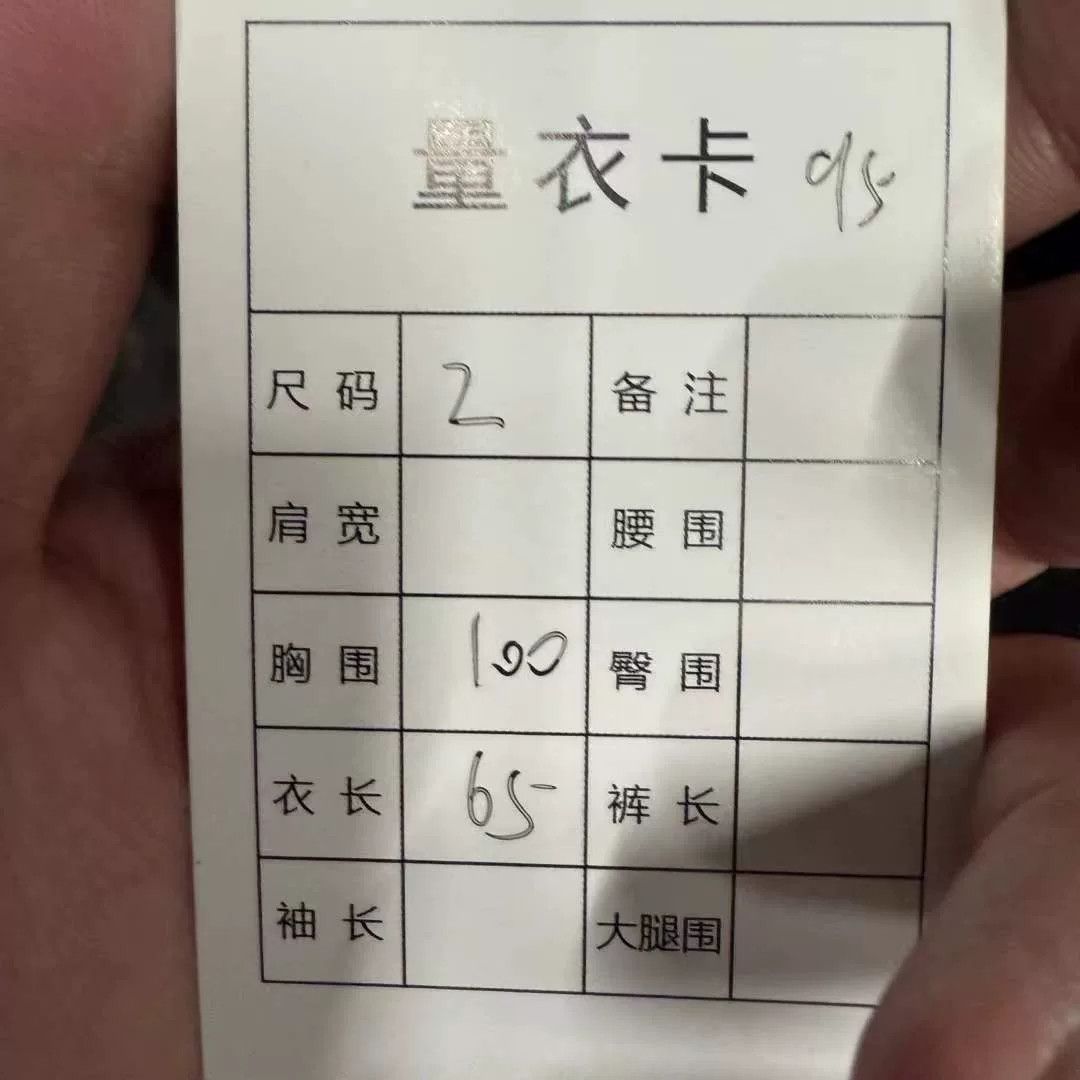 量衣卡 95
尺码 2 备注
肩宽 腰围
胸围 100 臀围
衣长 65 裤长
袖长 大腿围